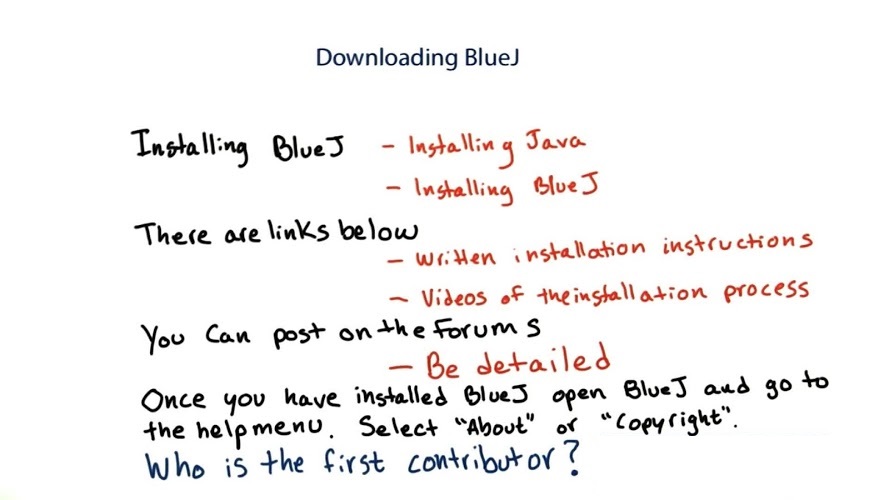 Downloading BlueJ
Installing BlueJ - Installing Java
- Installing BlueJ
There are links below
- Written installation instructions
- Videos of the installation process
You can post on the forums
- Be detailed
Once you have installed BlueJ open BlueJ and go to
the help menu. Select "About" or "Copyright".
Who is the first contributor?